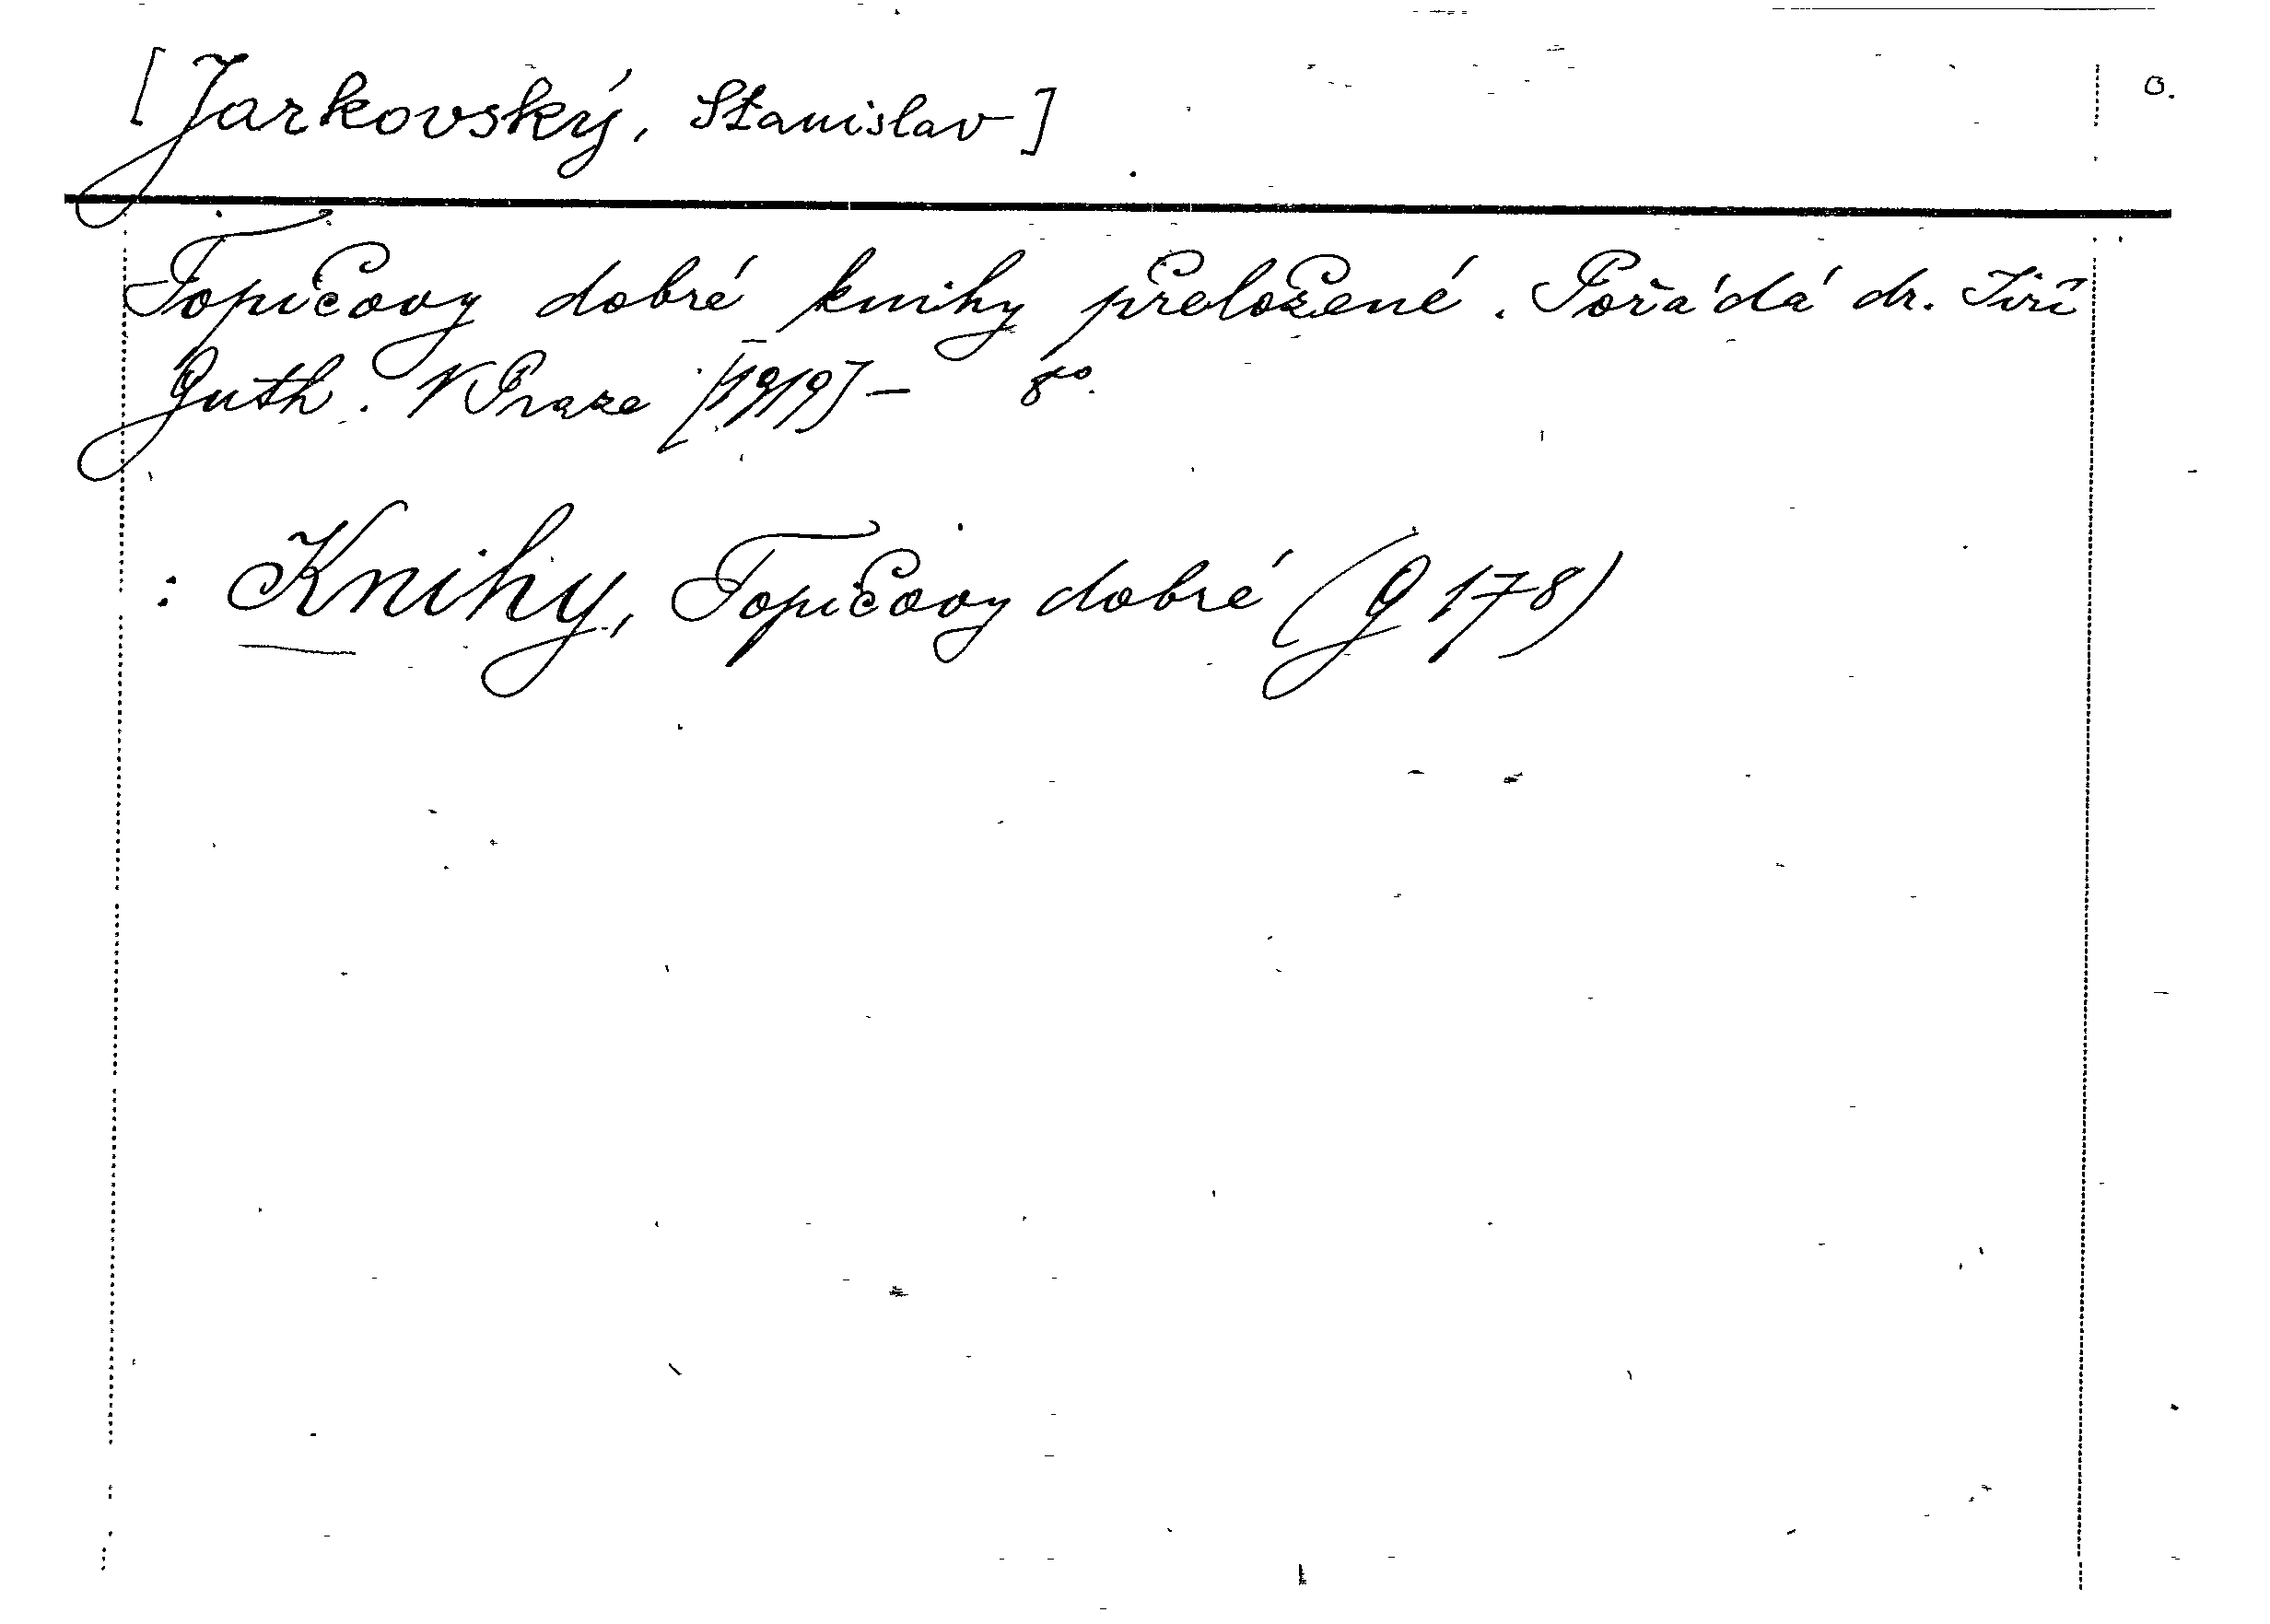 [Jarkovský, Stanislav] O.
Topičovy dobré knihy přeložené. Pořádá dr. Jiří
Guth. V Praze [1919] – 8°.
: Knihy, Topičovy dobré (G 178)